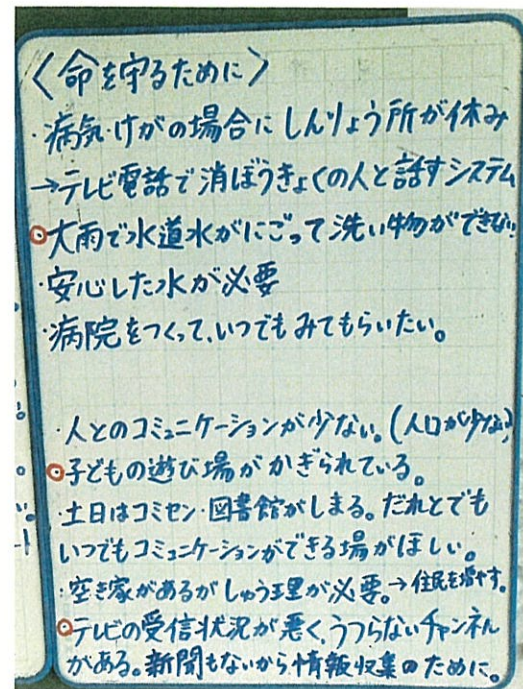 〈命を守るために〉
・病気・けがの場合にしんりょう所が休み
→テレビ電話で消ぼうきょくの人と話すシステム
・大雨で水道水がにごって洗い物ができない
・安心した水が必要
・病院をつくって、いつでもみてもらいたい。
・人とのコミュニケーションが少ない。(人口が少ない)
・子どもの遊び場がかぎられている。
・土日はコミセン・図書館がしまる。だれとでも
いつでもコミュニケーションができる場がほしい。
・空き家があるがしゅう理が必要。→住民を増やす。
・テレビの受信状況が悪く、うつらないチャンネル
がある。新聞もないから情報収集のために。